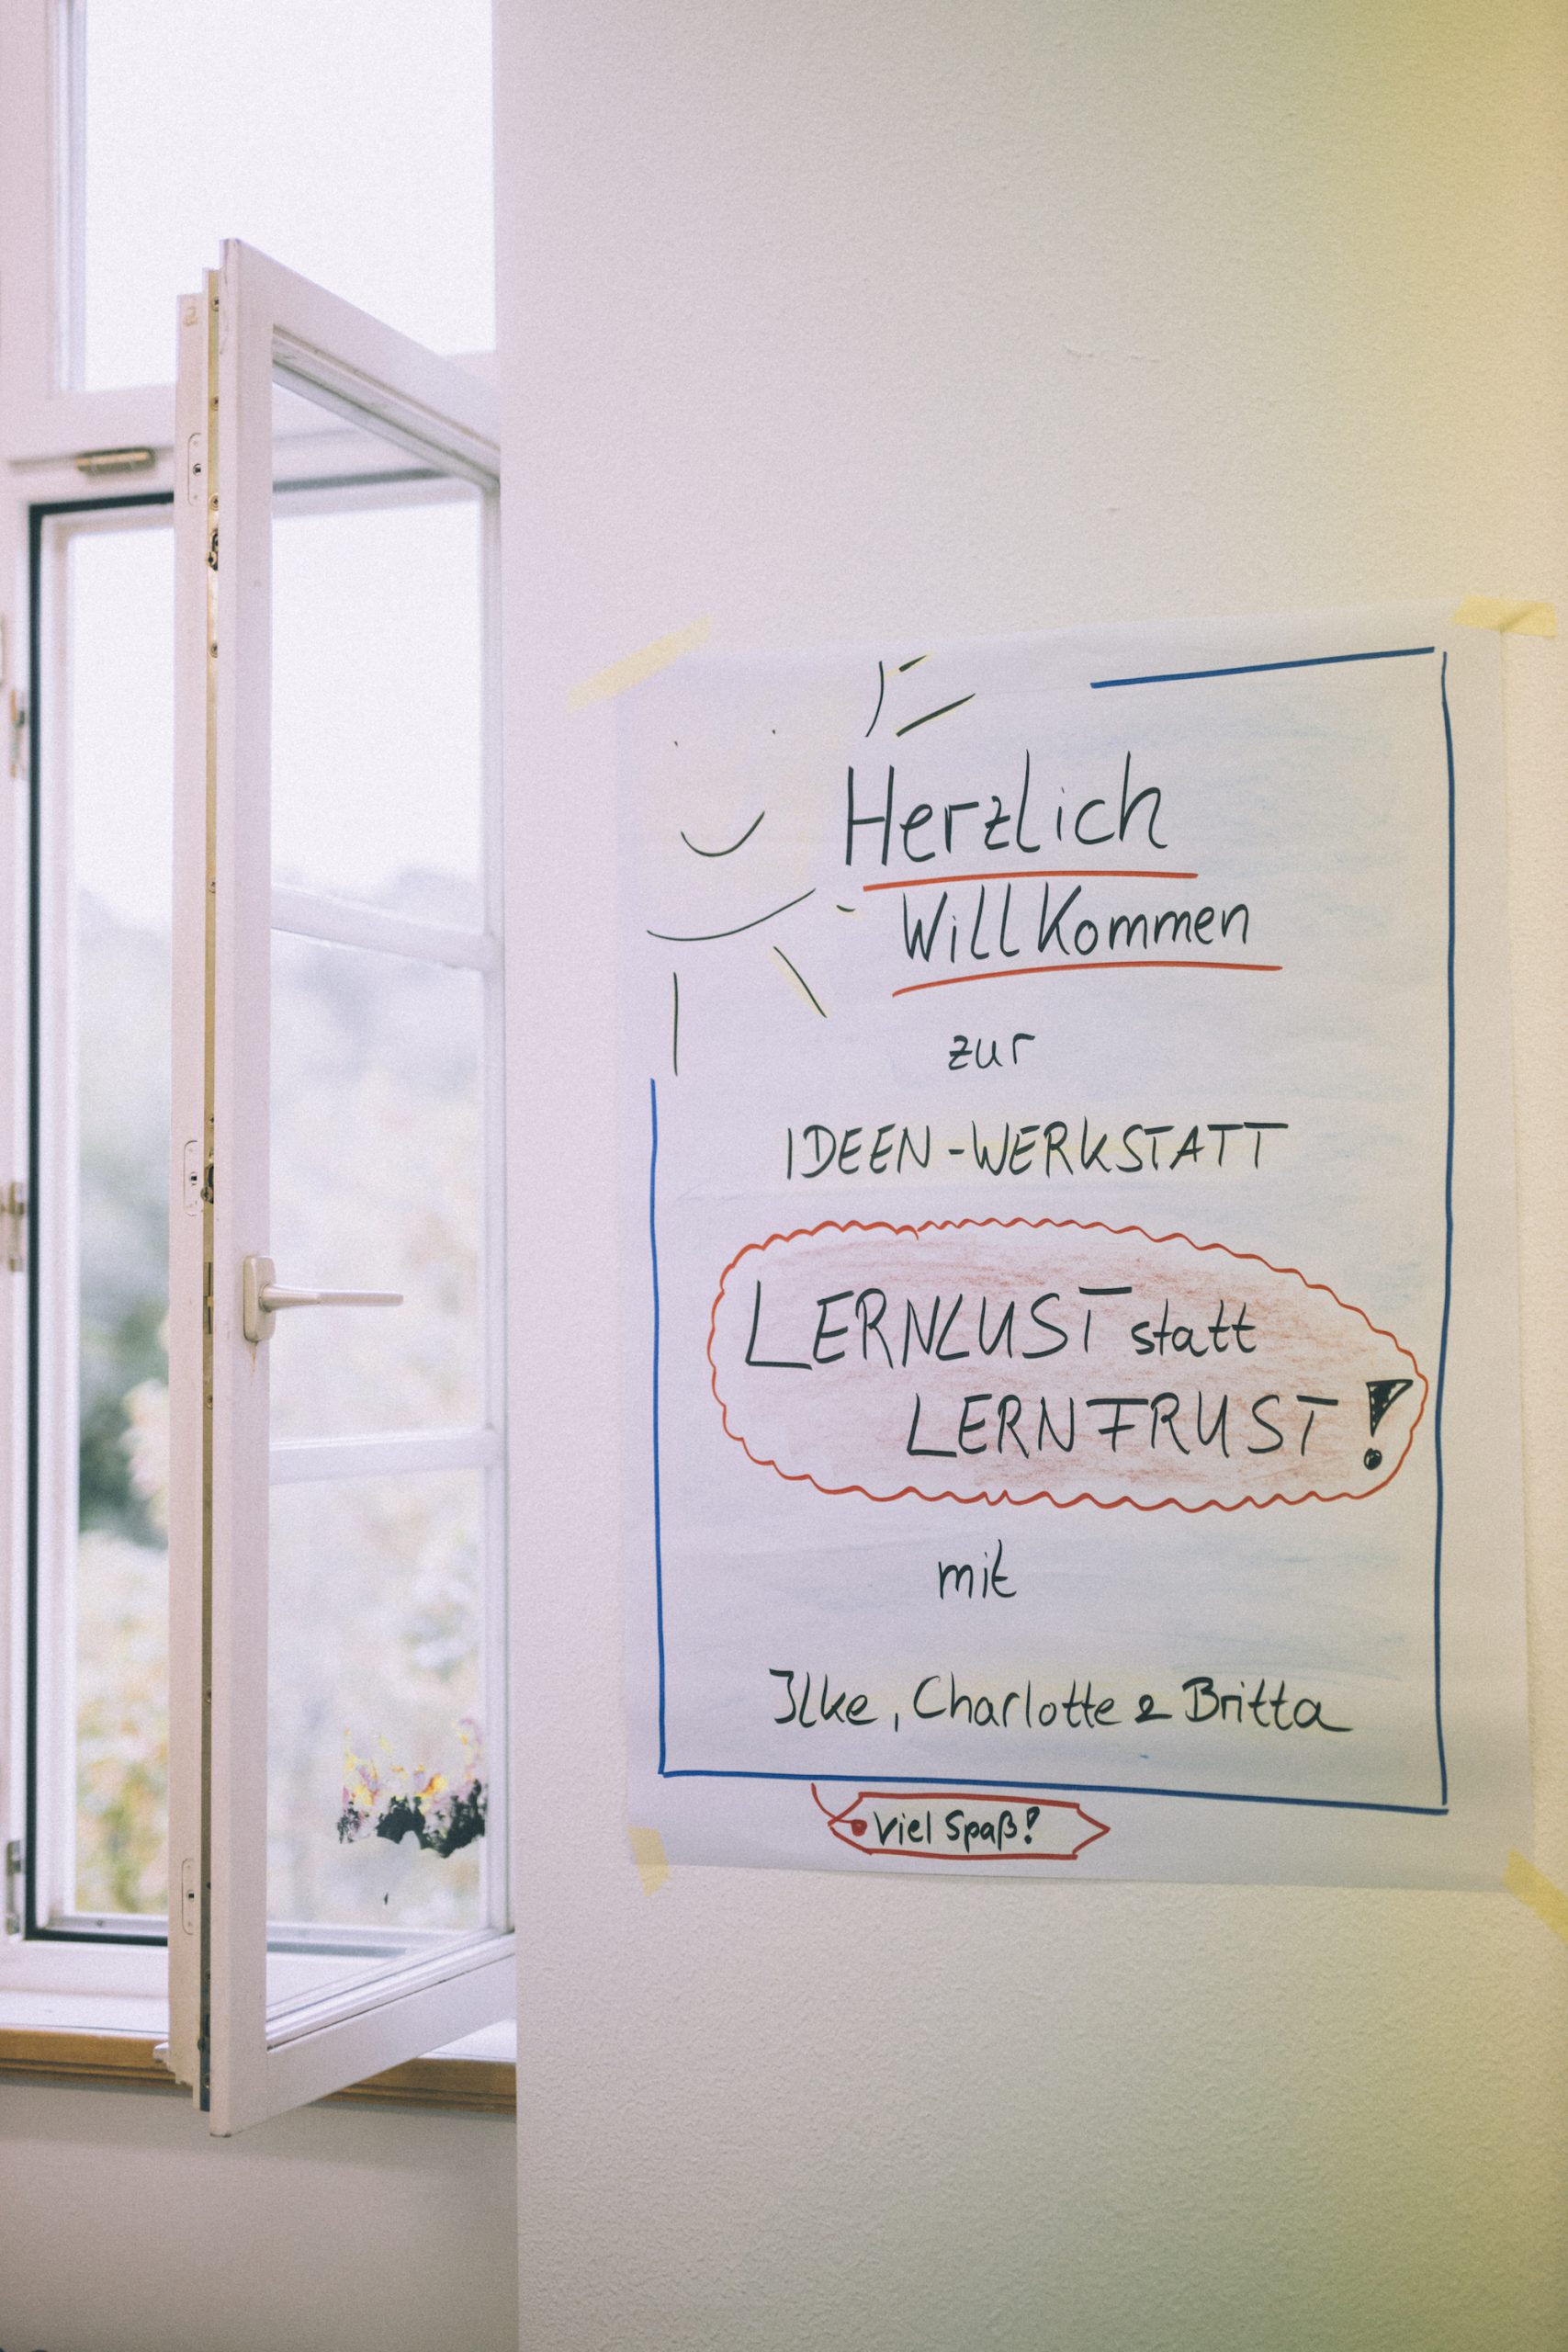 Herzlich
Willkommen
zur
IDEEN-WERKSTATT
LERNLUST statt
LERNFRUST!
mit
Ilke, Charlotte & Britta
Viel Spaß!